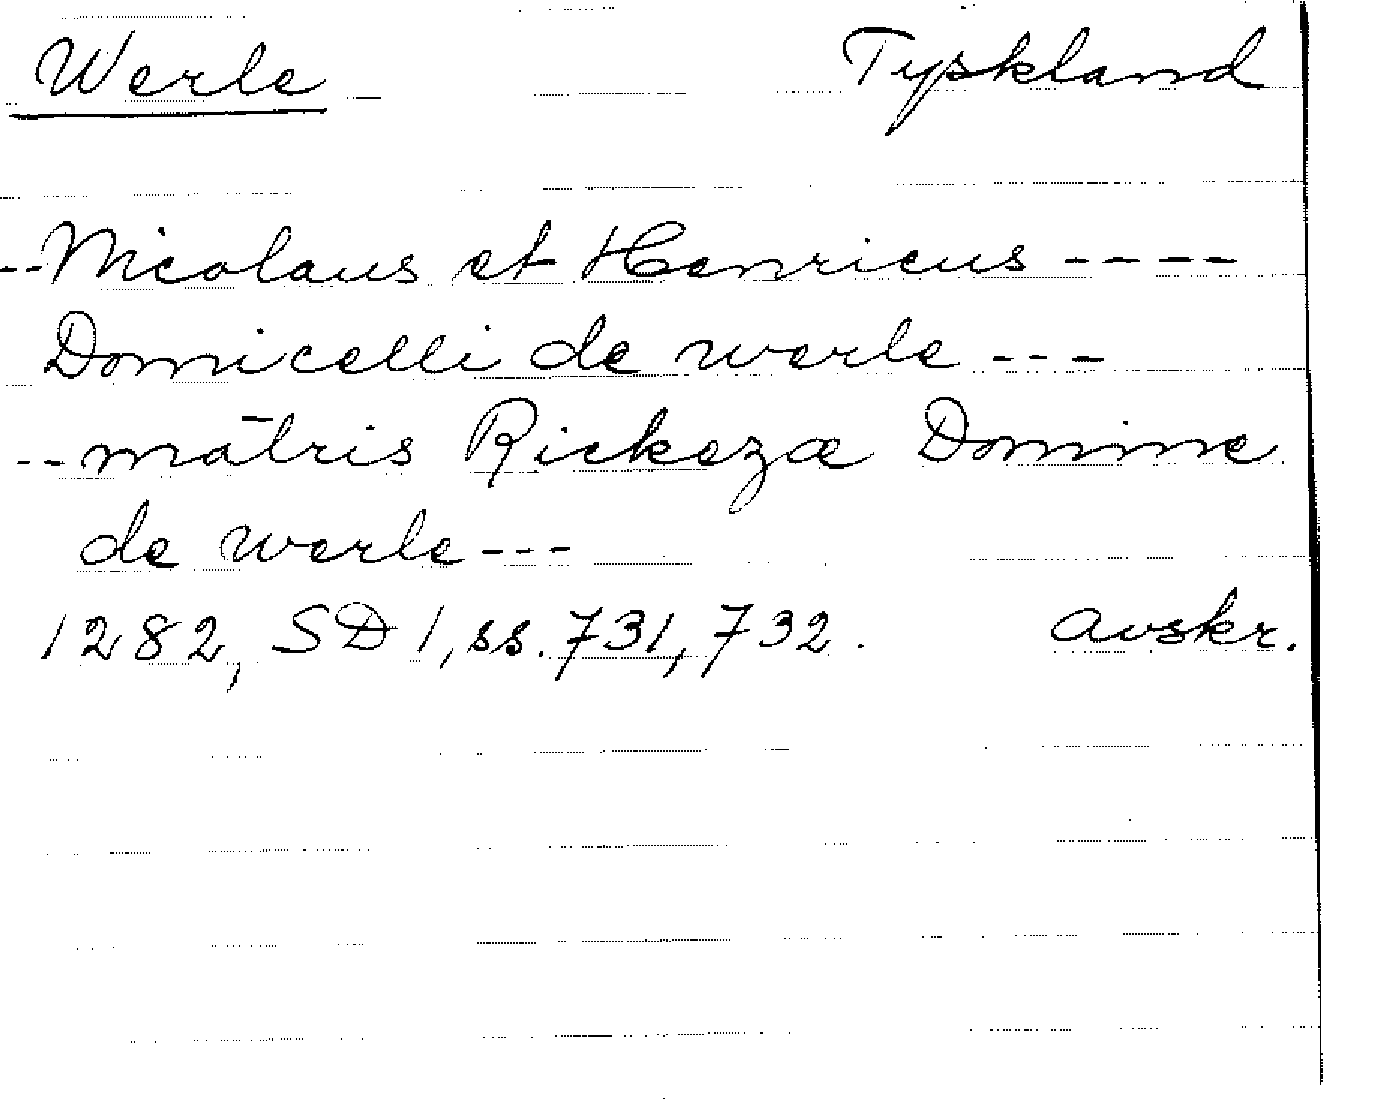 Werle Tyskland
--Nicolaus et Henricus ----
Domicelli de werle ---
--mātris Rickezæ Domine
de werle---
1282, SD 1, ss. 731, 732. avskr.